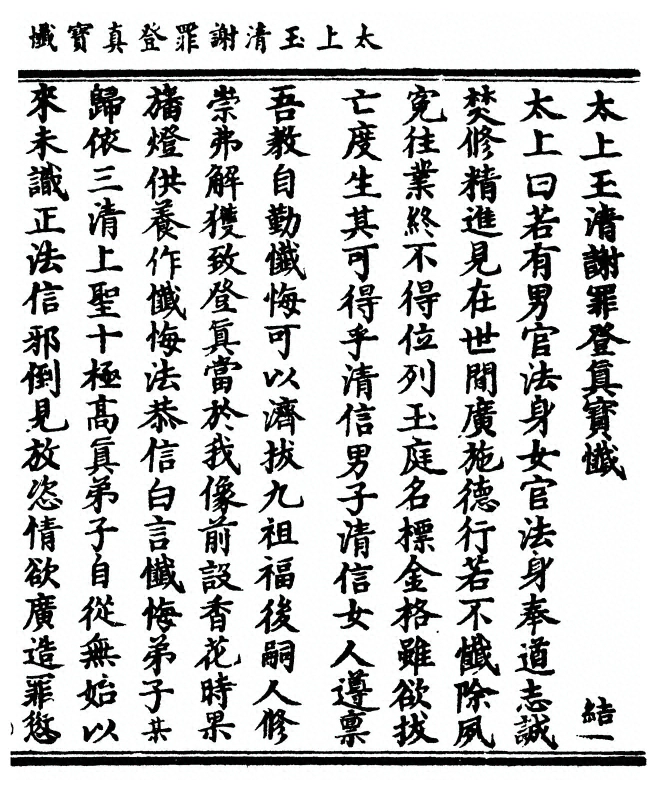 太上玉清謝罪登真寶懺
太上王清謝罪登眞寶懺 結一
太上曰若有男官法身女官法身奉道志誠
焚修精進見在世間廣施德行若不懺除夙
寃往業終不得位列玉庭名標金格雖欲拔
亡度生其可得乎清信男子清信女人遵禀
吾教自勤懺悔可以濟拔九祖福後嗣人修
崇弗解獲致登眞當於我像前設香花時果
旛燈供養作懺悔法恭信白言懺悔弟子其
歸依三清上聖十極高眞弟子自從無始以
來未識正法信邪倒見放恣情欲廣造罪愆